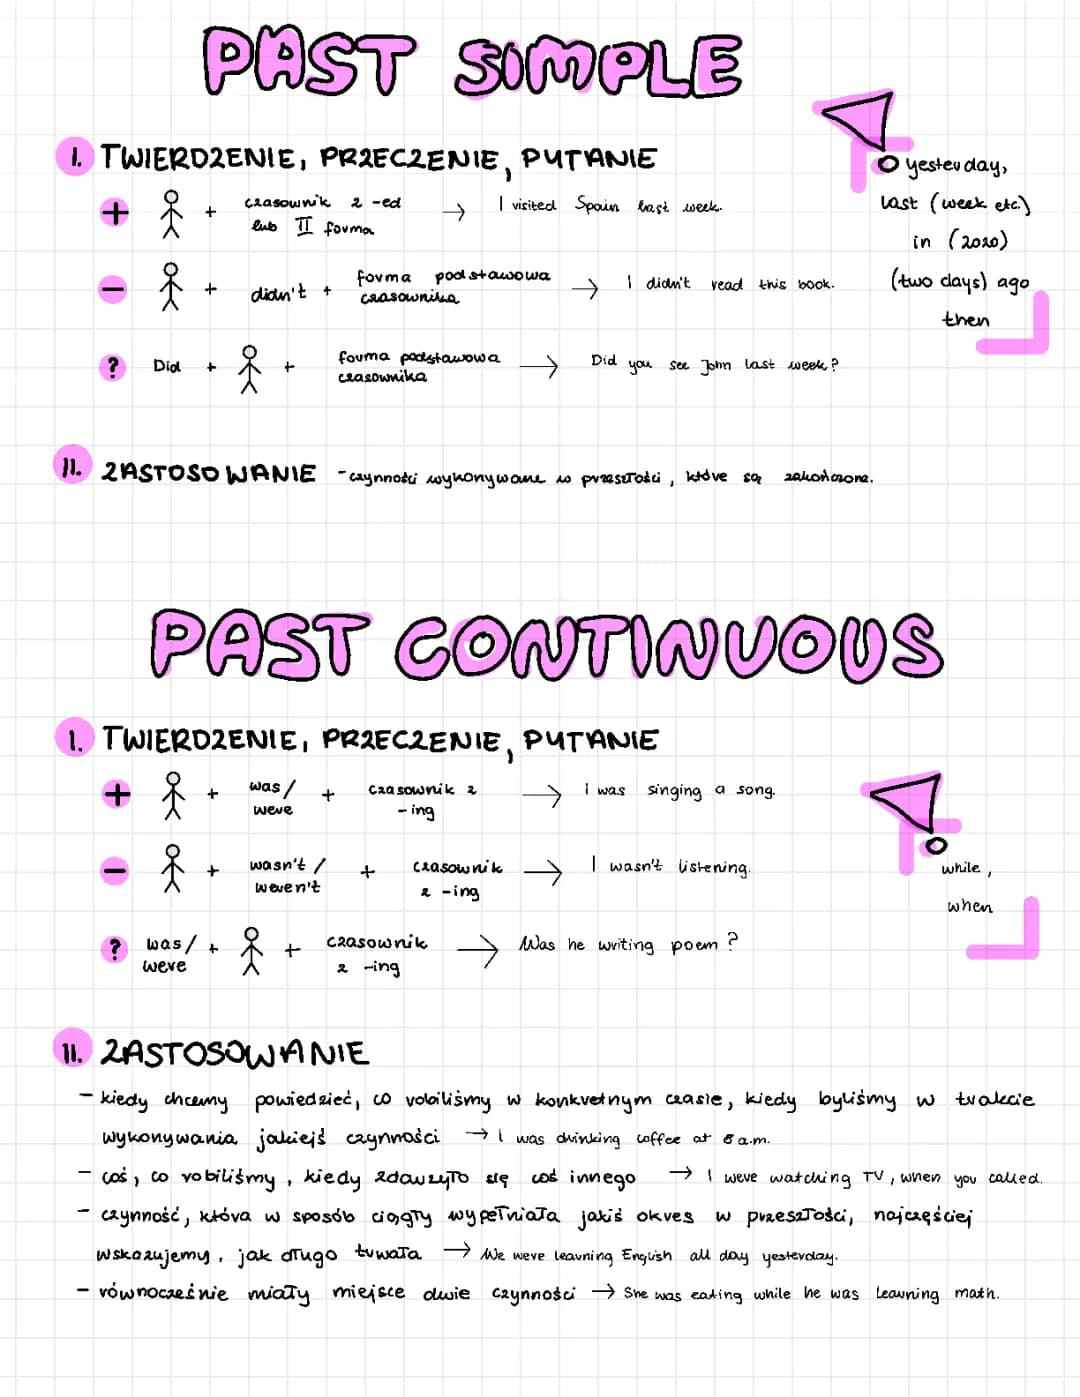 PAST SIMPLE
I. TWIERDZENIE, PRZECZENIE, PYTANIE
+ + czasownik z -ed lub II forma → I visited Spain last week.
- + didn't + forma podstawowa czasownika → I didn't read this book.
? Did + + forma podstawowa czasownika → Did you see John last week?
yesterday,
last (week etc.)
in (2020)
(two days) ago
then
II. ZASTOSOWANIE - czynności wykonywane w przeszłości, które są zakończone.
PAST CONTINUOUS
I. TWIERDZENIE, PRZECZENIE, PYTANIE
+ + was/were + czasownik z -ing → I was singing a song.
- + wasn't/weren't + czasownik z -ing → I wasn't listening.
? was/were + + czasownik z -ing → Was he writing poem?
while,
when
II. ZASTOSOWANIE
- kiedy chcemy powiedzieć, co robiliśmy w konkretnym czasie, kiedy byliśmy w trakcie
wykonywania jakiejś czynności → I was drinking coffee at 8 a.m.
- coś, co robiliśmy, kiedy zdarzyło się coś innego → I were watching TV, when you called.
- czynność, która w sposób ciągły wypełniała jakiś okres w przeszłości, najczęściej
wskazujemy, jak długo trwała → We were learning English all day yesterday.
- równocześnie miały miejsce dwie czynności → She was eating while he was learning math.